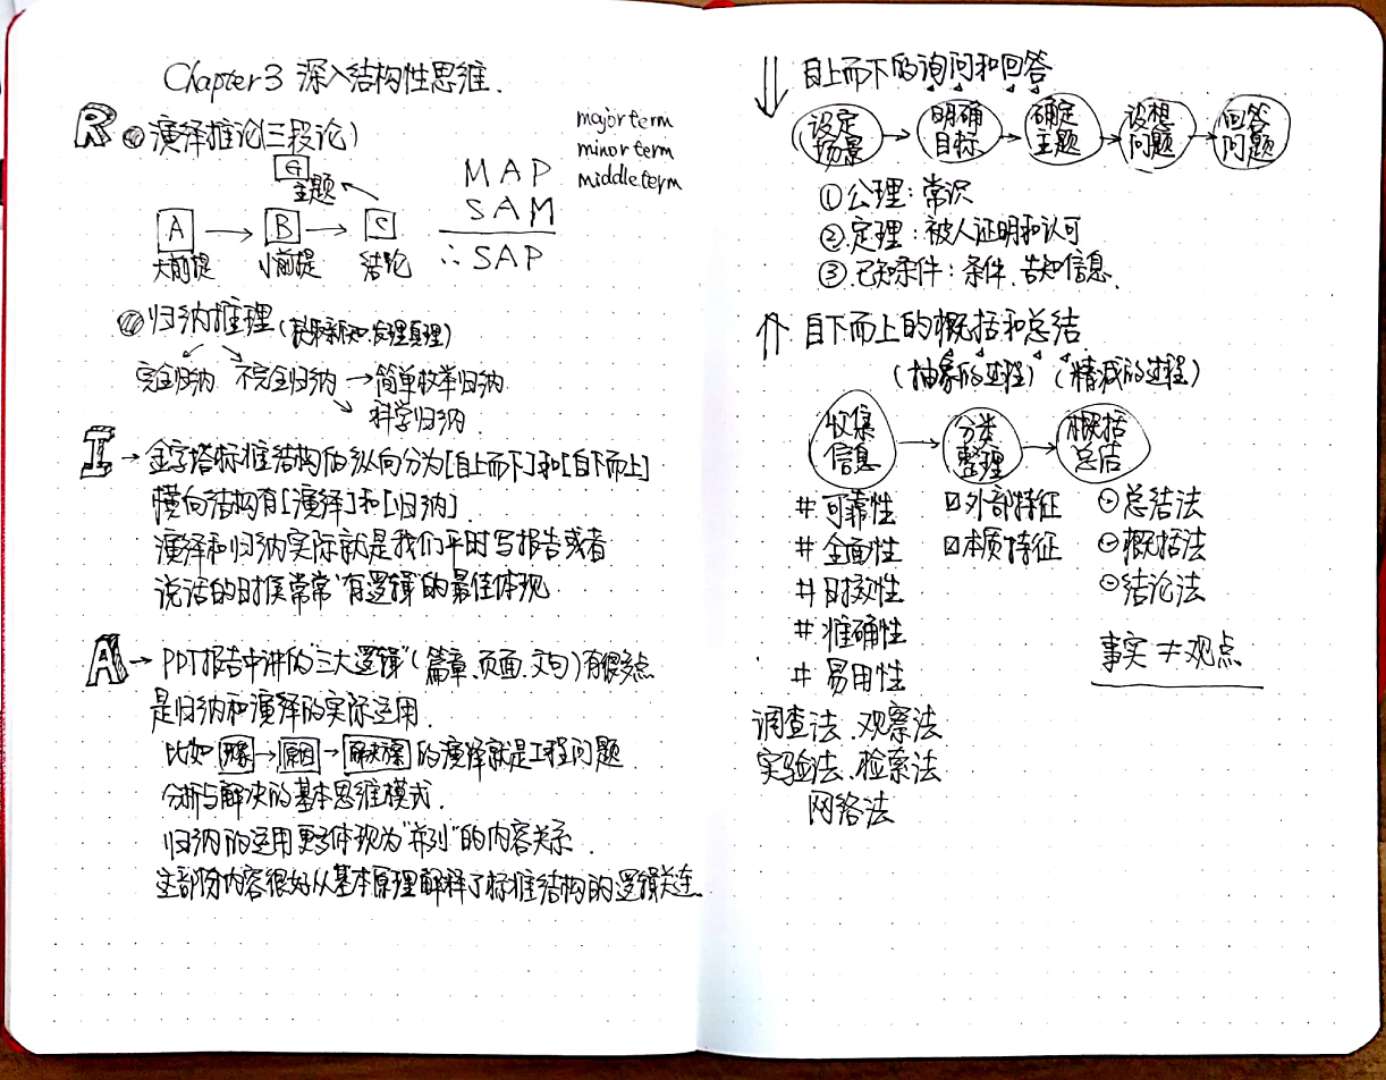 Chapter 3 深入结构性思维.
R 演泽推论(三段论)
major term
minor term
middle term
G
主题
A → B → C
大前提 小前提 结论
MAP
SAM
∴SAP
归纳推理
完全归纳 不完全归纳 → 简单枚举归纳
科学归纳.
I → 金字塔标准结构的纵向分为[自上而下]和[自下而上]
横向结构有[演泽]和[归纳].
演泽和归纳实际就是我们平时写报告或者
说话的时候常常“有逻辑”的最佳体现
A → PPT报告中讲的“三大逻辑”(篇章、页面、文句)有很多点
是归纳和演泽的实际运用.
比如 现象 → 原因 → 解决方案 的演泽就是工程问题
分析与解决的基本思维模式.
归纳的运用更多体现为“并列”的内容关系.
这部份内容很好从基本原理解释了标准结构的逻辑关连.
⇓ 自上而下的询问和回答
设定场景 → 明确目标 → 确定主题 → 设想问题 → 回答问题
①公理: 常识
②定理: 被人证明和认可
③已知条件: 条件、告知信息.
⇑ 自下而上的概括和总结
(抽象的过程) (精减的过程)
收集信息 → 分类整理 → 概括总结
# 可靠性
# 全面性
# 时效性
# 准确性
# 易用性
外部特征
本质特征
总结法
概括法
结论法
事实 ≠ 观点
调查法、观察法
实验法、检索法
网络法